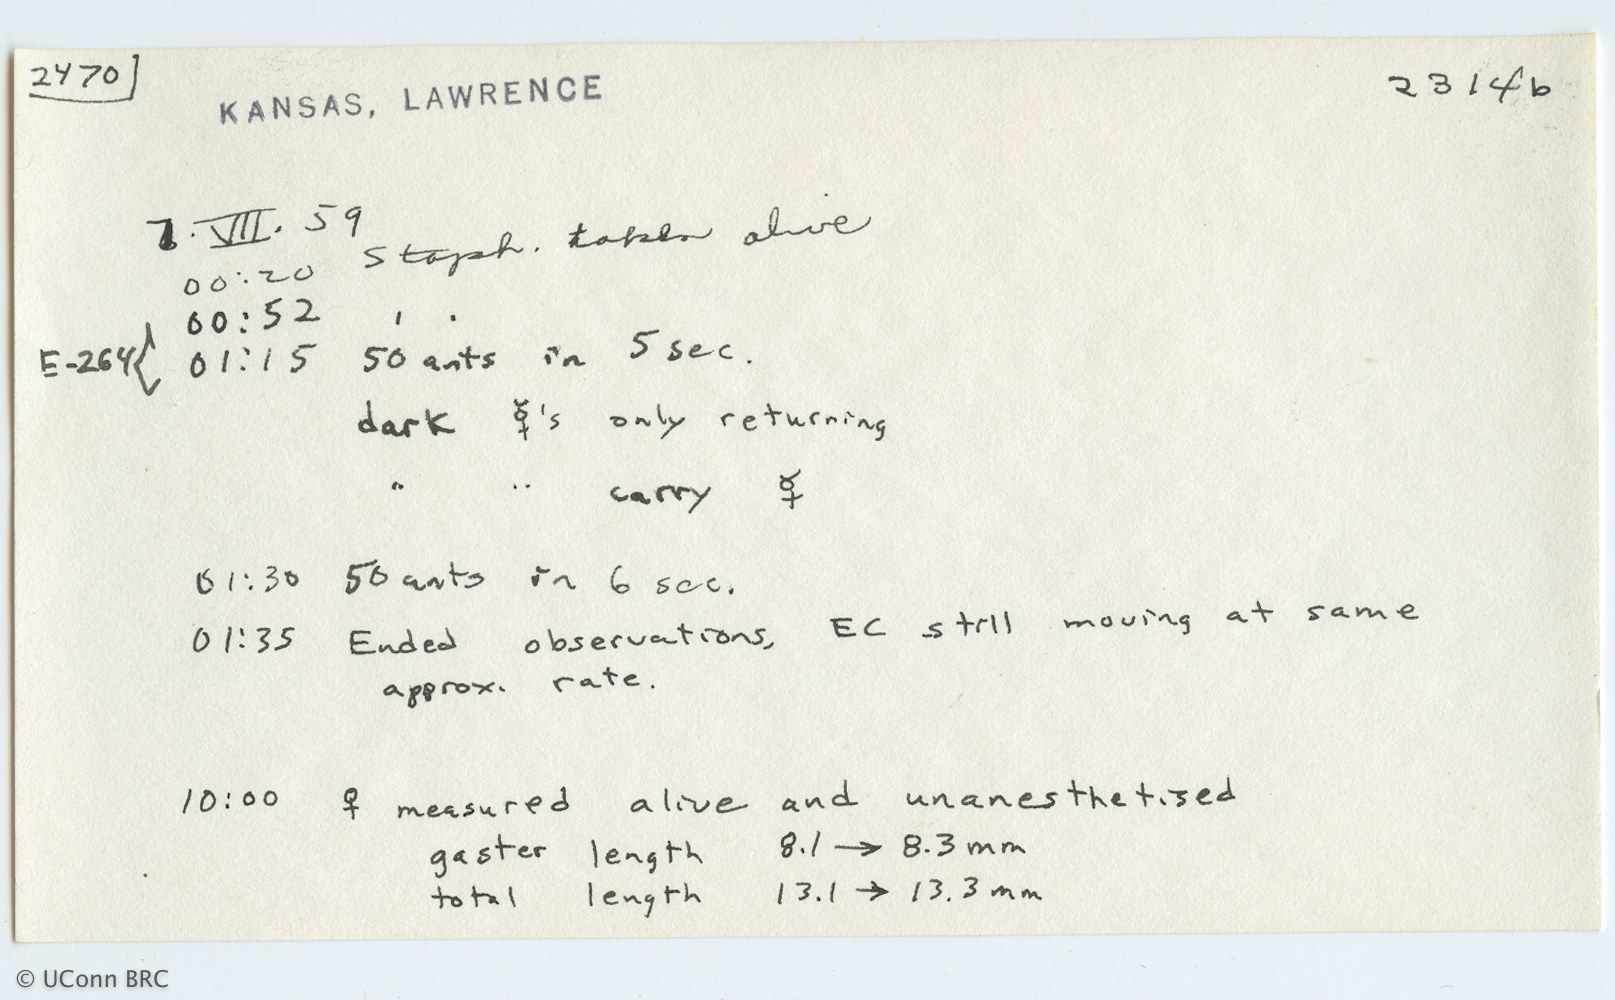 2470
KANSAS, LAWRENCE
2314b
7. VII. 59
00:20 Staph. taken alive
00:52 " "
E-264{ 01:15 50 ants in 5 sec.
dark ☿'s only returning
" " carry ☿
01:30 50 ants in 6 sec.
01:35 Ended observations, EC still moving at same
approx. rate.
10:00 ♀ measured alive and unanesthetised
gaster length 8.1 → 8.3 mm
total length 13.1 → 13.3 mm
© UConn BRC